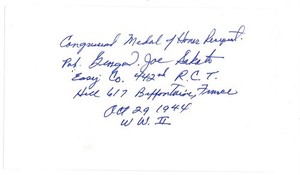 Congressional Medal of Honor Recipient.
Pvt. George Joe Sakato
Easy Co. 442nd R.C.T.
Hill 617 Biffontaine, France
Oct 29 1944
W W. II